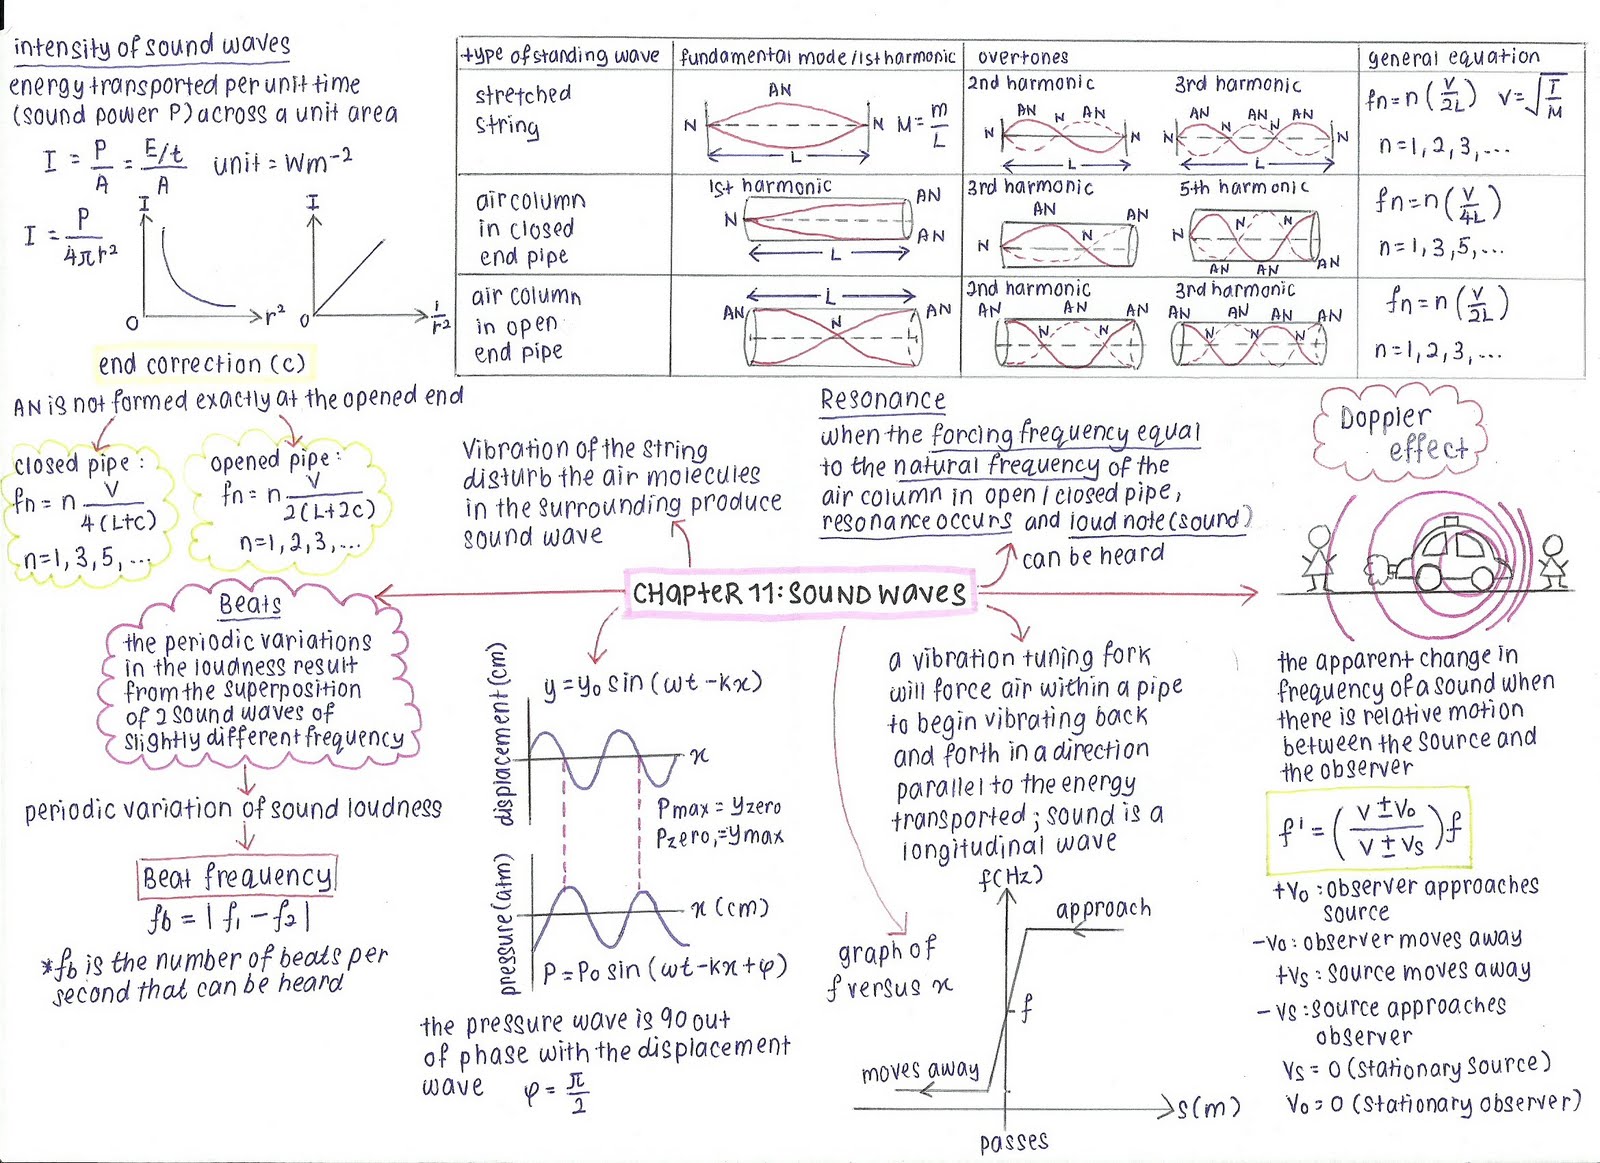 intensity of sound waves
energy transported per unit time
(sound power P) across a unit area
I = P/A = E/t / A unit = Wm⁻²
I = P/4πr²
I
0
r²
I
0
1/r²
type of standing wave
fundamental mode / 1st harmonic
overtones
general equation
stretched
string
AN
N
N
L
M = m/L
2nd harmonic
AN
N
AN
N
N
L
3rd harmonic
AN
AN
AN
N
N
N
N
L
fn = n(V/2L) V = √T/M
n = 1, 2, 3, ...
air column
in closed
end pipe
1st harmonic
N
AN
AN
L
3rd harmonic
AN
AN
N
N
5th harmonic
AN
AN
N
N
N
AN
AN
AN
fn = n(V/4L)
n = 1, 3, 5, ...
air column
in open
end pipe
L
AN
N
AN
2nd harmonic
AN
AN
AN
N
N
3rd harmonic
AN
AN
AN
AN
N
N
N
fn = n(V/2L)
n = 1, 2, 3, ...
end correction (c)
AN is not formed exactly at the opened end
closed pipe :
fn = n V/4(L+c)
n = 1, 3, 5, ...
opened pipe :
fn = n V/2(L+2c)
n = 1, 2, 3, ...
Vibration of the string
disturb the air molecules
in the surrounding produce
sound wave
Resonance
when the forcing frequency equal
to the natural frequency of the
air column in open / closed pipe,
resonance occurs and loud note (sound)
can be heard
Doppler
effect
CHAPTER 11: SOUND WAVES
Beats
the periodic variations
in the loudness result
from the superposition
of 2 sound waves of
slightly different frequency
periodic variation of sound loudness
Beat frequency
fb = | f1 - f2 |
*fb is the number of beats per
second that can be heard
y = y₀ sin (ωt - kx)
displacement (cm)
x
Pmax = yzero
Pzero, = ymax
pressure (atm)
x (cm)
P = P₀ sin (ωt - kx + φ)
the pressure wave is 90 out
of phase with the displacement
wave φ = π/2
a vibration tuning fork
will force air within a pipe
to begin vibrating back
and forth in a direction
parallel to the energy
transported ; sound is a
longitudinal wave
graph of
f versus x
f (Hz)
approach
f
moves away
s (m)
passes
the apparent change in
frequency of a sound when
there is relative motion
between the source and
the observer
f' = (V ± Vo / V ± Vs) f
+Vo : observer approaches
source
-Vo : observer moves away
+Vs : source moves away
-Vs : source approaches
observer
Vs = 0 (stationary source)
Vo = 0 (stationary observer)